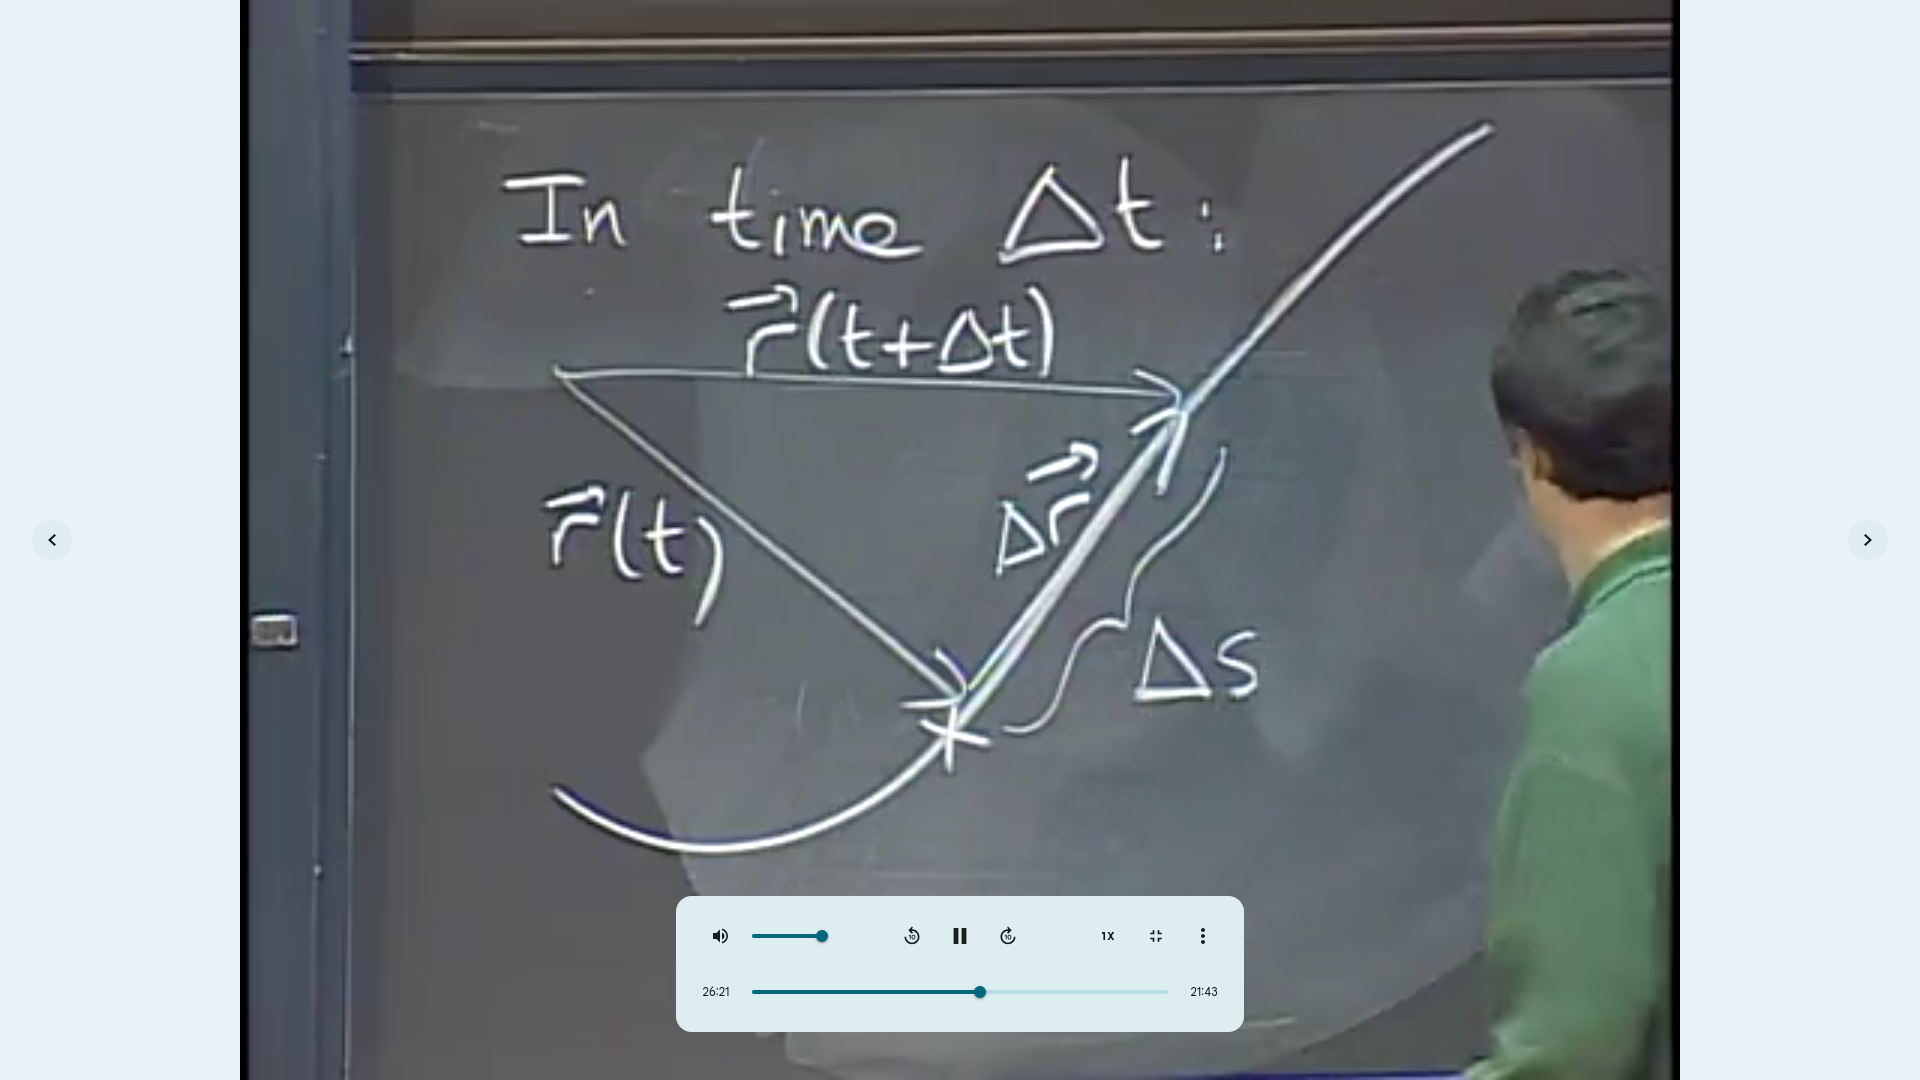 In time Δt:
r⃗(t+Δt)
r⃗(t)
Δr⃗
Δs
10
10
1X
26:21
21:43